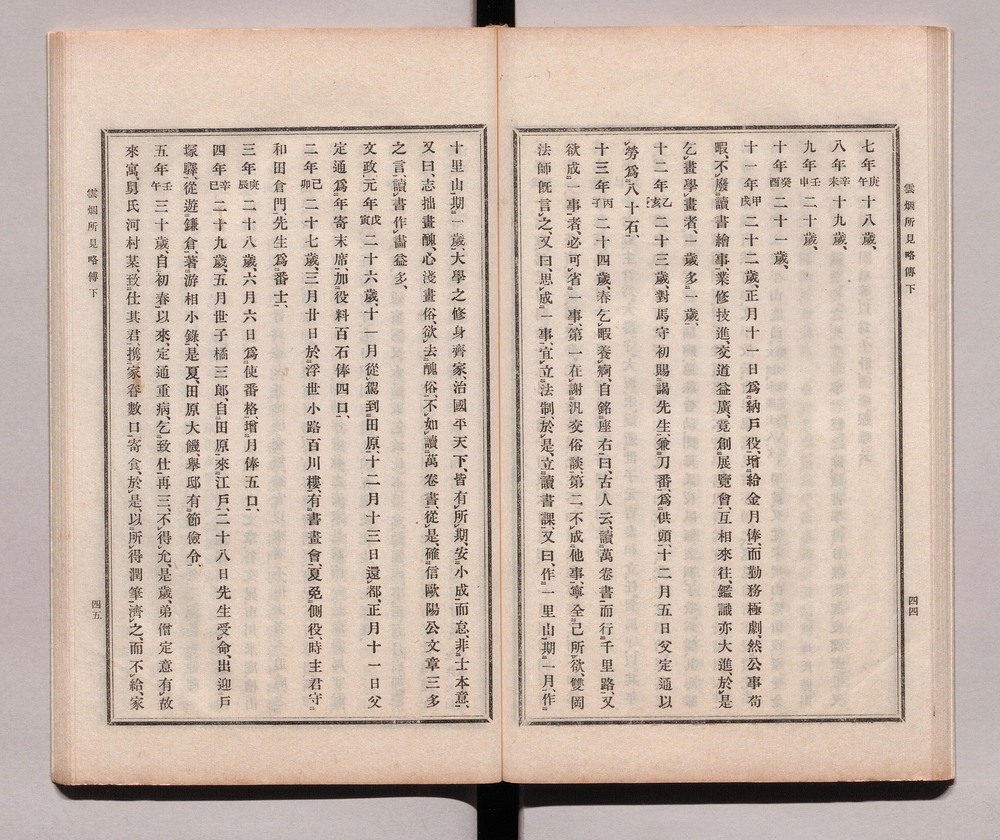 雲烟所見略傳下
四四
七年庚午十八歲、
八年辛未十九歲、
九年壬申二十歲、
十年癸酉二十一歲、
十一年甲戌二十二歲、正月十一日爲納戶役、增給金月俸、而勤務極劇、然公事苟
暇、不廢讀書繪事、業修技進、交道益廣、竟創展覽會、互相來往、鑑識亦大進、於是
乞畫學畫者、一歲多一歲、
十二年乙亥二十三歲對馬守初賜謁先生、兼刀番爲供頭、十二月五日父定通以
勞爲八十石、
十三年丙子二十四歲春乞暇養痾、自銘座右曰、古人云、讀萬卷書、而行千里路、又
欲成一事者、必可省一事、第一在謝汎交俗談、第二不成他事、寧全己所欲、雙岡
法師既言之、又曰、思成一事、宜立法制、於是立讀書課、又曰、作一里山、期一月、作
十里山期一歲、大學之修身齊家、治國平天下、皆有所期、安小成而怠、非士本意、
又曰、志拙畫醜、心淺畫俗、欲去醜俗、不如讀萬卷書、從是確信歐陽公文章三多
之言、讀書作畫益多、
文政元年戊寅二十六歲、十一月從駕到田原、十二月十三日還都、正月十一日父
定通爲年寄末席、加役料百石俸四口、
二年己卯二十七歲、三月廿日於浮世小路百川樓、有書畫會、夏免側役、時主君守
和田倉門、先生爲番士、
三年庚辰二十八歲、六月六日爲使番格、增月俸五口、
四年辛巳二十九歲、五月世子橘三郞、自田原來江戶、二十八日先生受命、出迎戶
塚驛、從遊鎌倉、著游相小錄、是夏、田原大饑、舉邸有節儉令、
五年壬午三十歲、自初春以來、定通重病、乞致仕再三、不得允、是歲、弟僧定意有故
來寓、舅氏河村某、致仕其君、携家眷數口、寄食、於是以所得潤筆濟之、而不給、家
雲烟所見略傳下
四五